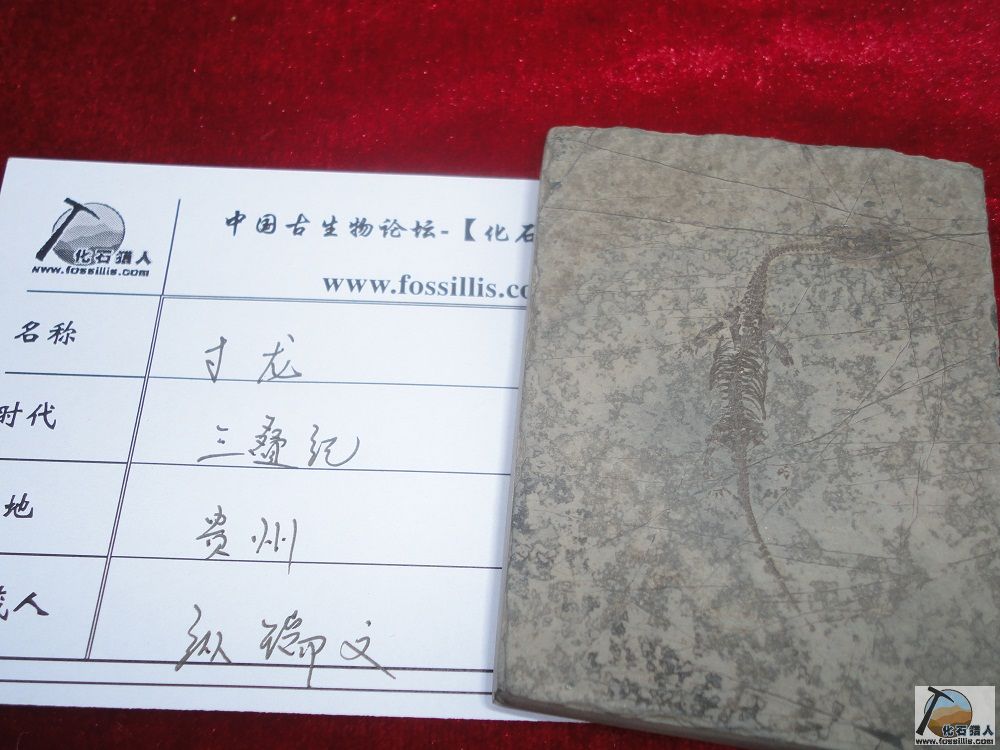 中国古生物论坛-【化石
化石猎人
www.fossillis.com
www.fossillis.co
名称
寸龙
时代
三叠纪
地
贵州
人
纵 文
化石猎人
www.fossillis.com